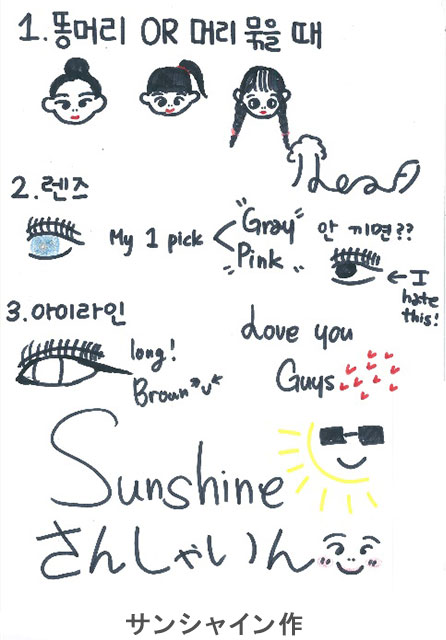 1. 똥머리 OR 머리 묶을 때
2. 렌즈
My 1 pick < "Gray" "Pink"
안 끼면??
← I hate this!
3. 아이라인
long!
Brown*ᴗ*
Love you Guys
Sunshine
さんしゃいん
サンシャイン作